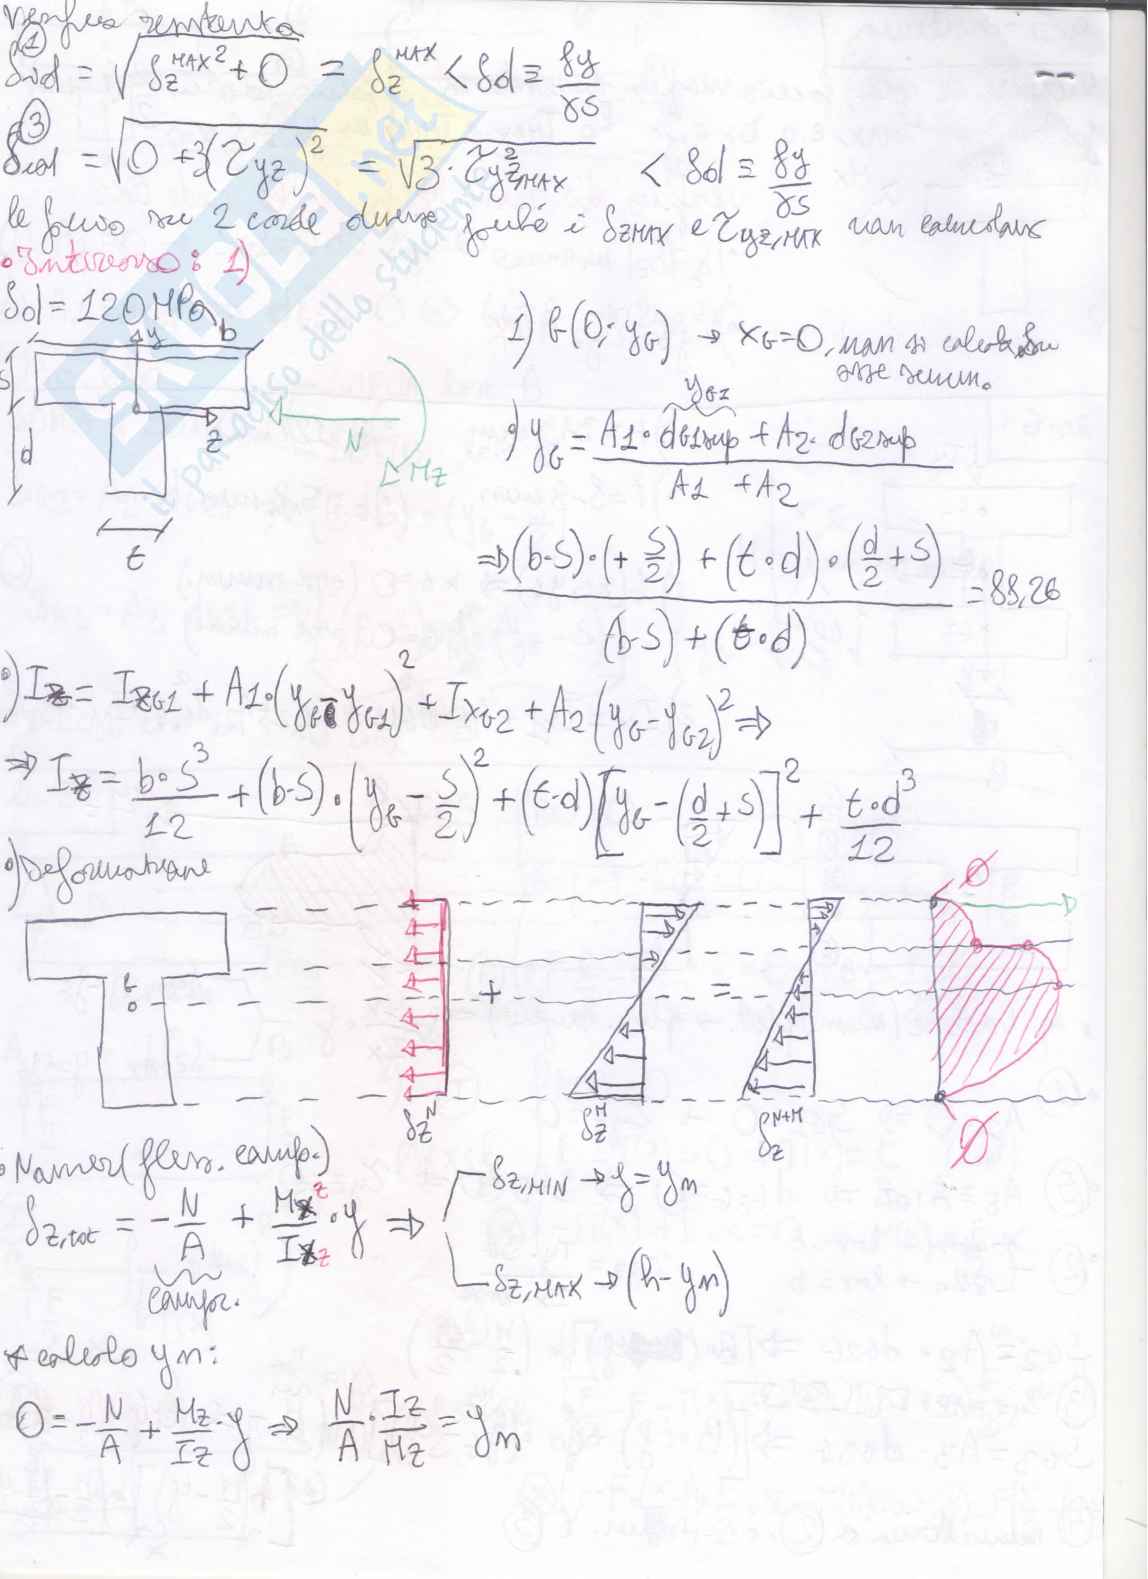 Verifica resistenza
①
δid = √(δz^MAX² + 0) = δz^MAX < δd ≡ fy/γs
③
δid = √(0 + 3(τyz)²) = √(3·τ²yz,MAX) < δd ≡ fy/γs
le faccio su 2 corde diverse perché i δzMAX e τyz,MAX non
• Intrecesso: 1)
δd = 120 MPa
b
y
s
z
d
t
N
Mz
1) G(0; yG) → xG=0, non si calcola su
asse simm.
yGz
•) yG = (A1·dG1sup + A2·dG2sup) / (A1 + A2)
⇒ ((b·S)·(+ S/2) + (t·d)·(d/2 + S)) / ((b·S) + (t·d)) = 88,26
•) Iz = IzG1 + A1·(yG - yG1)² + IxG2 + A2(yG - yG2)² ⇒
⇒ Iz = b·S³/12 + (b·S)·(yG - S/2)² + (t·d)[yG - (d/2 + S)]² + t·d³/12
•) Deformazione
G
+
=
Ø
δz^N
δz^M
δz^N+M
Ø
• Navier (fless. comp.)
δz,tot = - N/A + Mz/Iz · y ⇒
δz,MIN → y = yn
δz,MAX → (h - yn)
compr.
* calcolo yn:
0 = - N/A + Mz/Iz · y ⇒ N/A · Iz/Mz = yn
SKUOLA.net
il paradiso dello studente